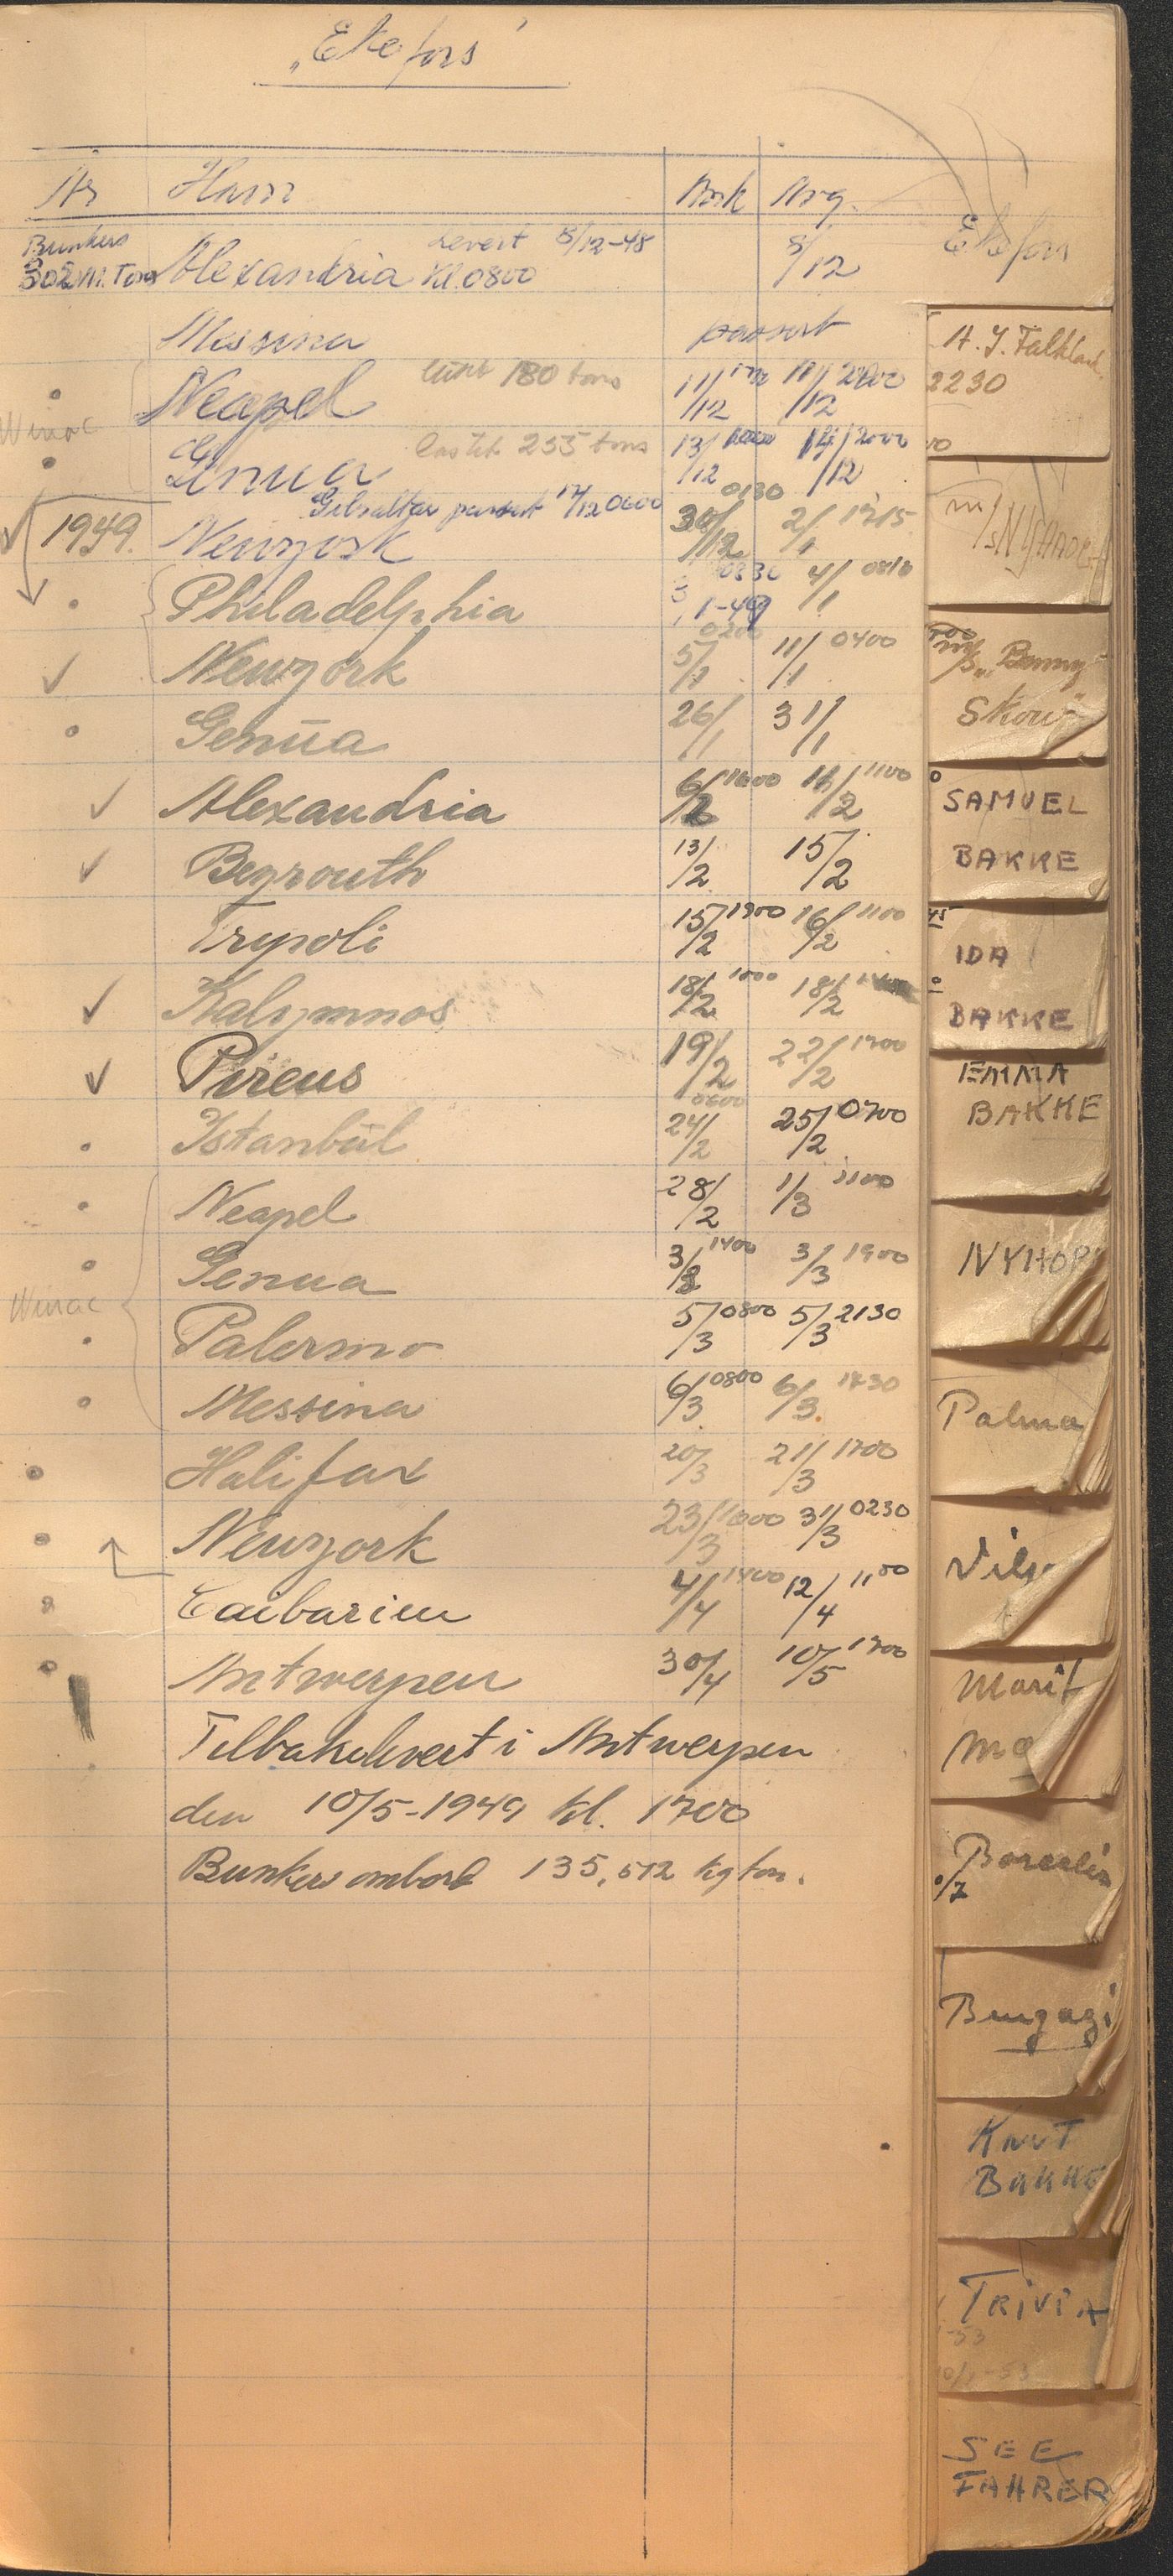 „Ekefors"
År Havn Ank Avg.
Bunkers
302 M. Tons Alexandria Levert 8/12-48 Kl. 0800 8/12
Messina passert
Neapel 180 tons 11/12 11/12 2000
Genua lastet 255 tons 13/12 14/12 2000
Gibraltar passert 17/12 0600
1949. Newyork 30/12 0130 2/1 1715
Philadelphia 3/1-49 0330 4/1 0810
Newyork 5/1 0200 11/1 0400
Genua 26/1 31/1
Alexandria 6/2 1600 11/2 1100
Beyrouth 13/2 15/2
Trypoli 15/2 1900 16/2 1100
Kalymnos 18/2 1000 18/2
Pireus 19/2 22/2 1700
Istanbul 24/2 0600 25/2 0700
Neapel 28/2 1/3 1100
Genua 3/3 1400 3/3 1900
Winac Palermo 5/3 0800 5/3 2130
Messina 6/3 0800 6/3 1730
Halifax 20/3 21/3 1700
Newyork 23/3 1000 31/3 0230
Caibarien 4/4 1400 12/4 1100
Antwerpen 30/4 10/5 1700
Tilbakelevert i Antwerpen
den 10/5-1949 kl. 1700
Bunkers ombord 135,512 kg ton.
Ekefors
A. J. Falkland
2230
m/s NYHADEN
m/s „Benny
Skou"
SAMUEL
BAKKE
IDA
BAKKE
EMMA
BAKKE
NYHOR
Palma
Marit
Bengazi
KNUT
BAKKE
TRIVIA
SEE
FAHRER